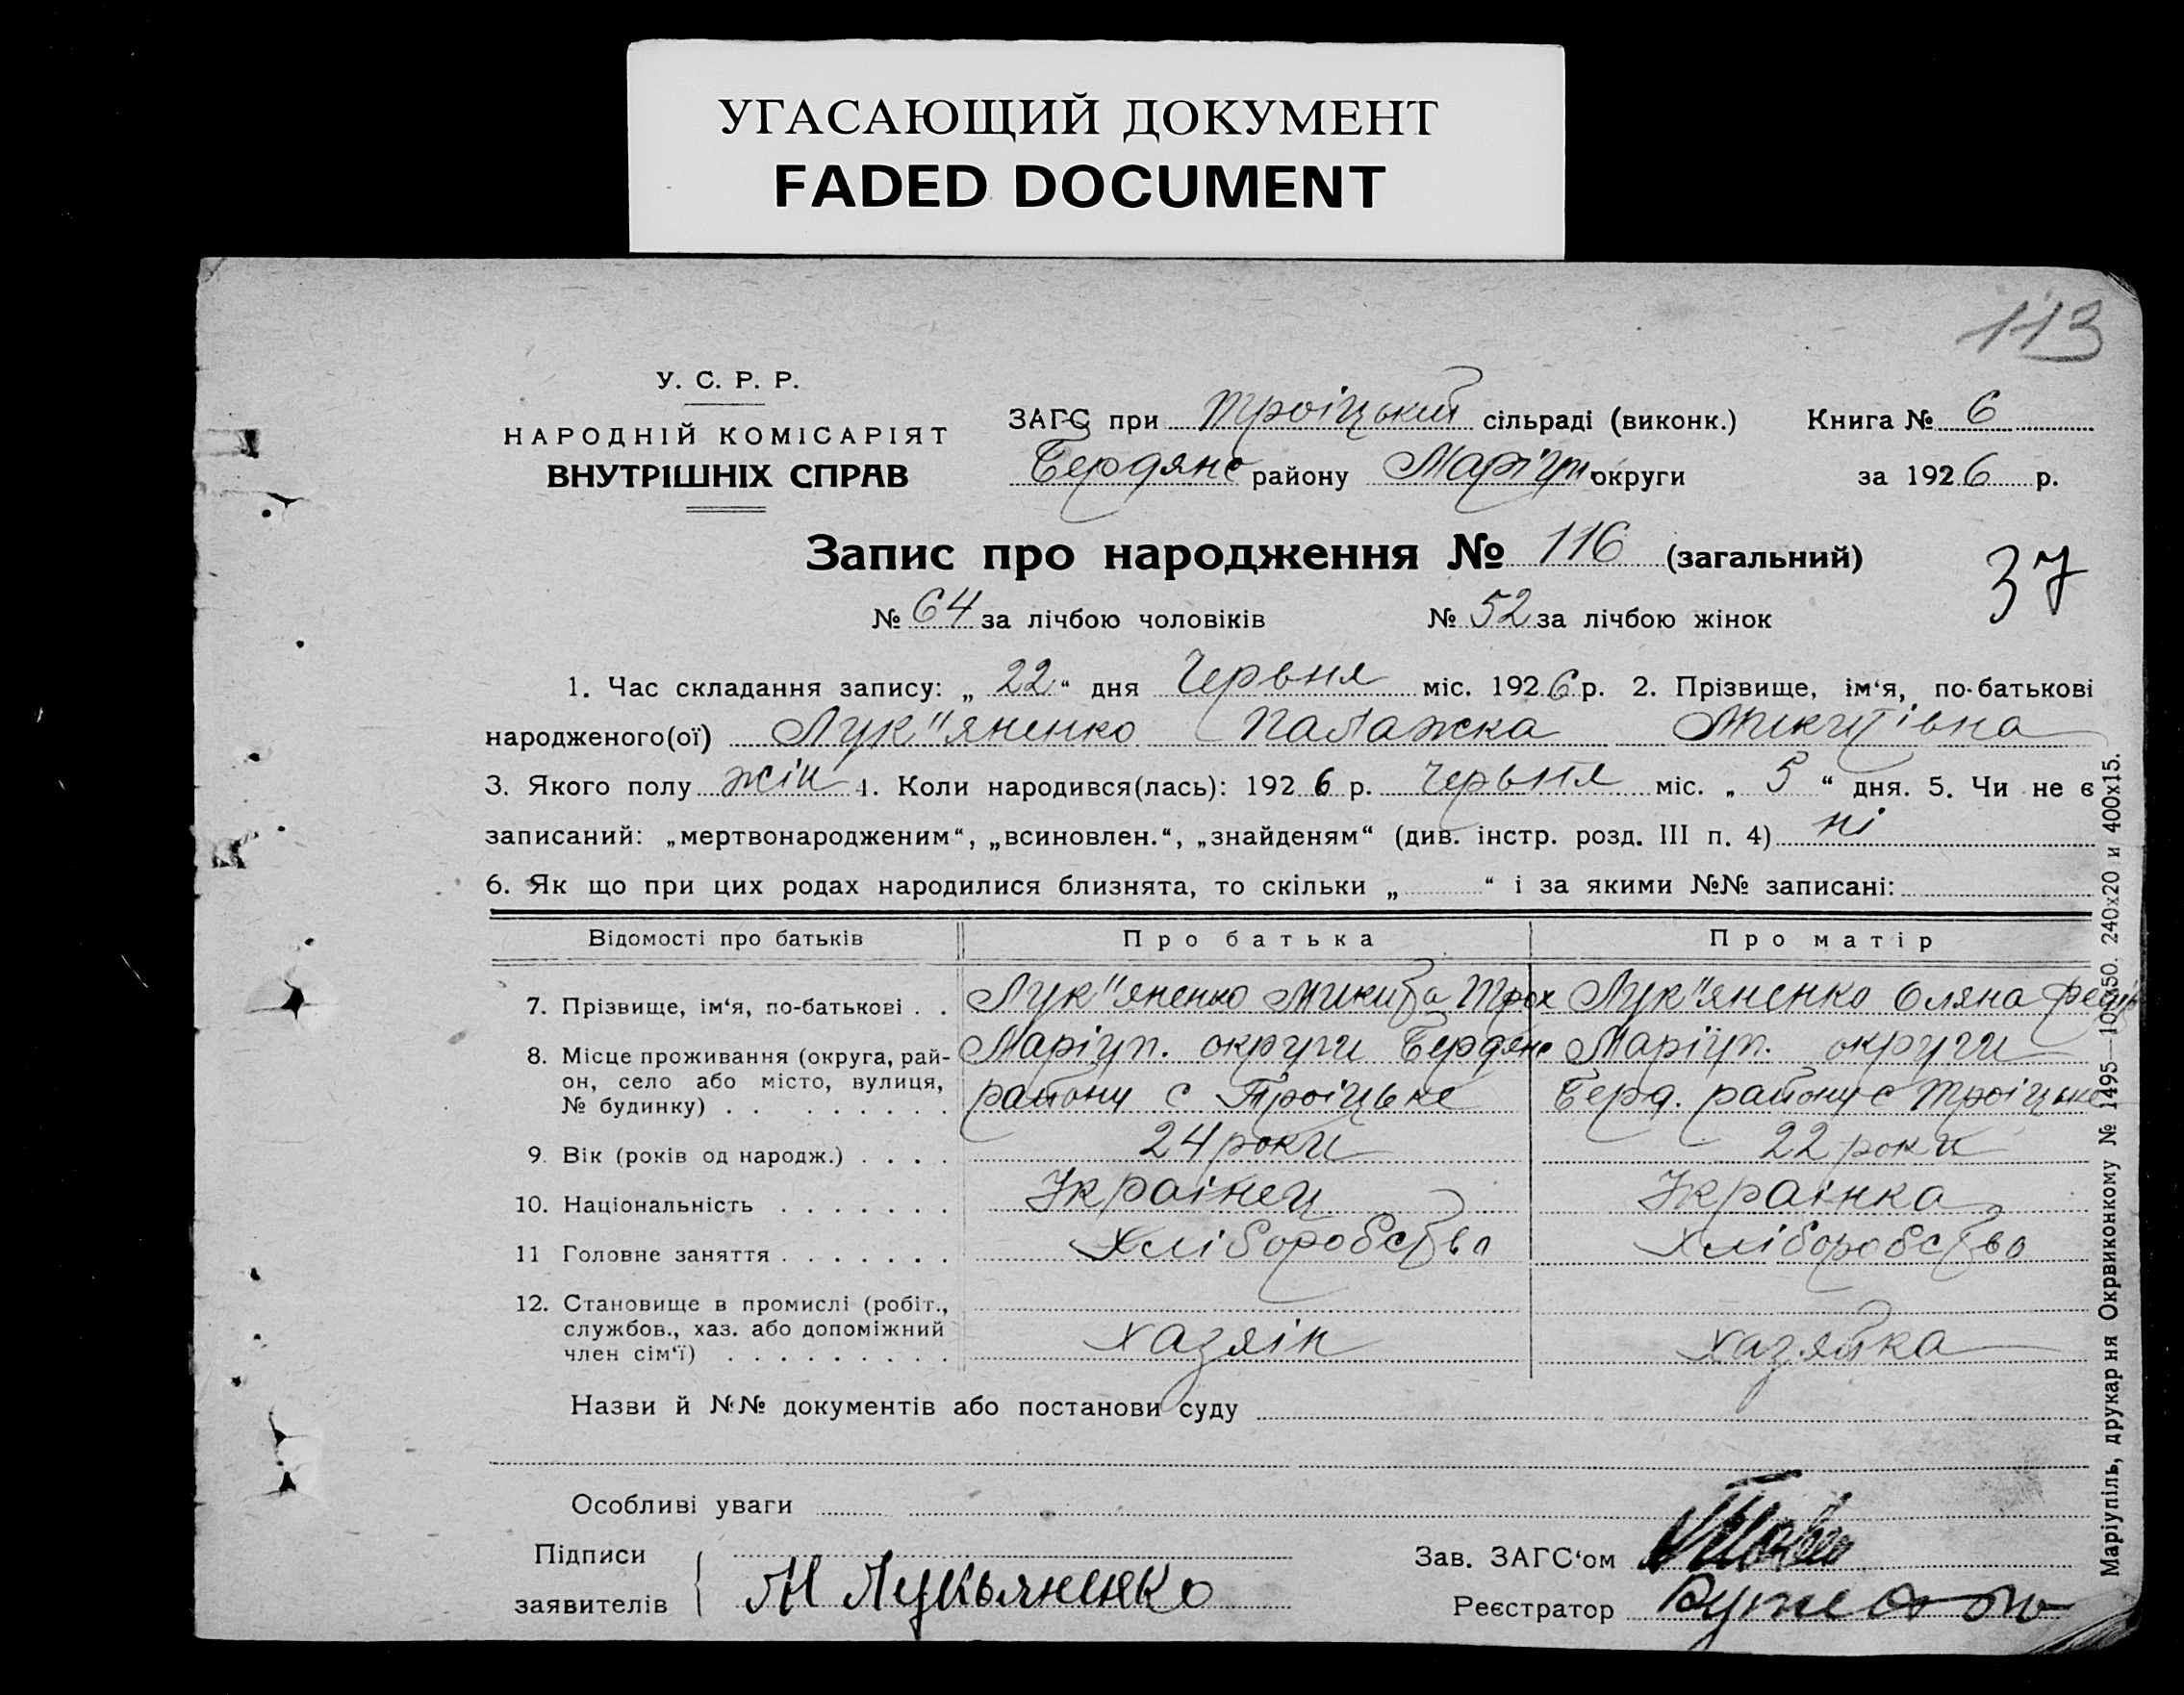 УГАСАЮЩИЙ ДОКУМЕНТ
FADED DOCUMENT
113
У. С. Р. Р.
НАРОДНІЙ КОМІСАРІЯТ
ВНУТРІШНІХ СПРАВ
ЗАГС при Троіцький сільраді (виконк.) Книга № 6
Бердянс району Маріуп округи за 1926 р.
Запис про народження № 116 (загальний)
37
№ 64 за лічбою чоловіків № 52 за лічбою жінок
1. Час складання запису: „ 22 “ дня Червня міс. 1926 р. 2. Прізвище, ім‘я, по-батькові
народженого(ої) Лук"яненко Палажка Микитівна
3. Якого полу жін 4. Коли народився(лась): 1926 р. Червня міс. „ 5 “ дня. 5. Чи не є
записаний: „мертвонародженим“, „всиновлен.“, „знайденям“ (див. інстр. розд. III п. 4) ні
6. Як що при цих родах народилися близнята, то скільки „ “ і за якими №№ записані:
Відомості про батьків Про батька Про матір
7. Прізвище, ім‘я, по-батькові . . Лук"яненко Микита Трох Лук"яненко Оляна
8. Місце проживання (округа, рай- Маріуп. округи Бердянс Маріуп. округи
он, село або місто, вулиця, району с Троіцьке Берд. району с Троіцьке
№ будинку) . . . . . . . . .
9. Вік (років од народж.) . . . . 24 роки 22 роки
10. Національність . . . . . . . Украінец Украінка
11 Головне заняття . . . . . . . Хліборобство Хліборобство
12. Становище в промислі (робіт.,
службов., хаз. або допоміжний
член сім‘ї) . . . . . . . . . хазяін хазяйка
Назви й №№ документів або постанови суду
Особливі уваги
Підписи
заявителів М Лукьяненко
Зав. ЗАГС‘ом
Реєстратор
Маріупіль, друкарня Окрвиконкому № 1495—10x50. 240x20 и 400x15.